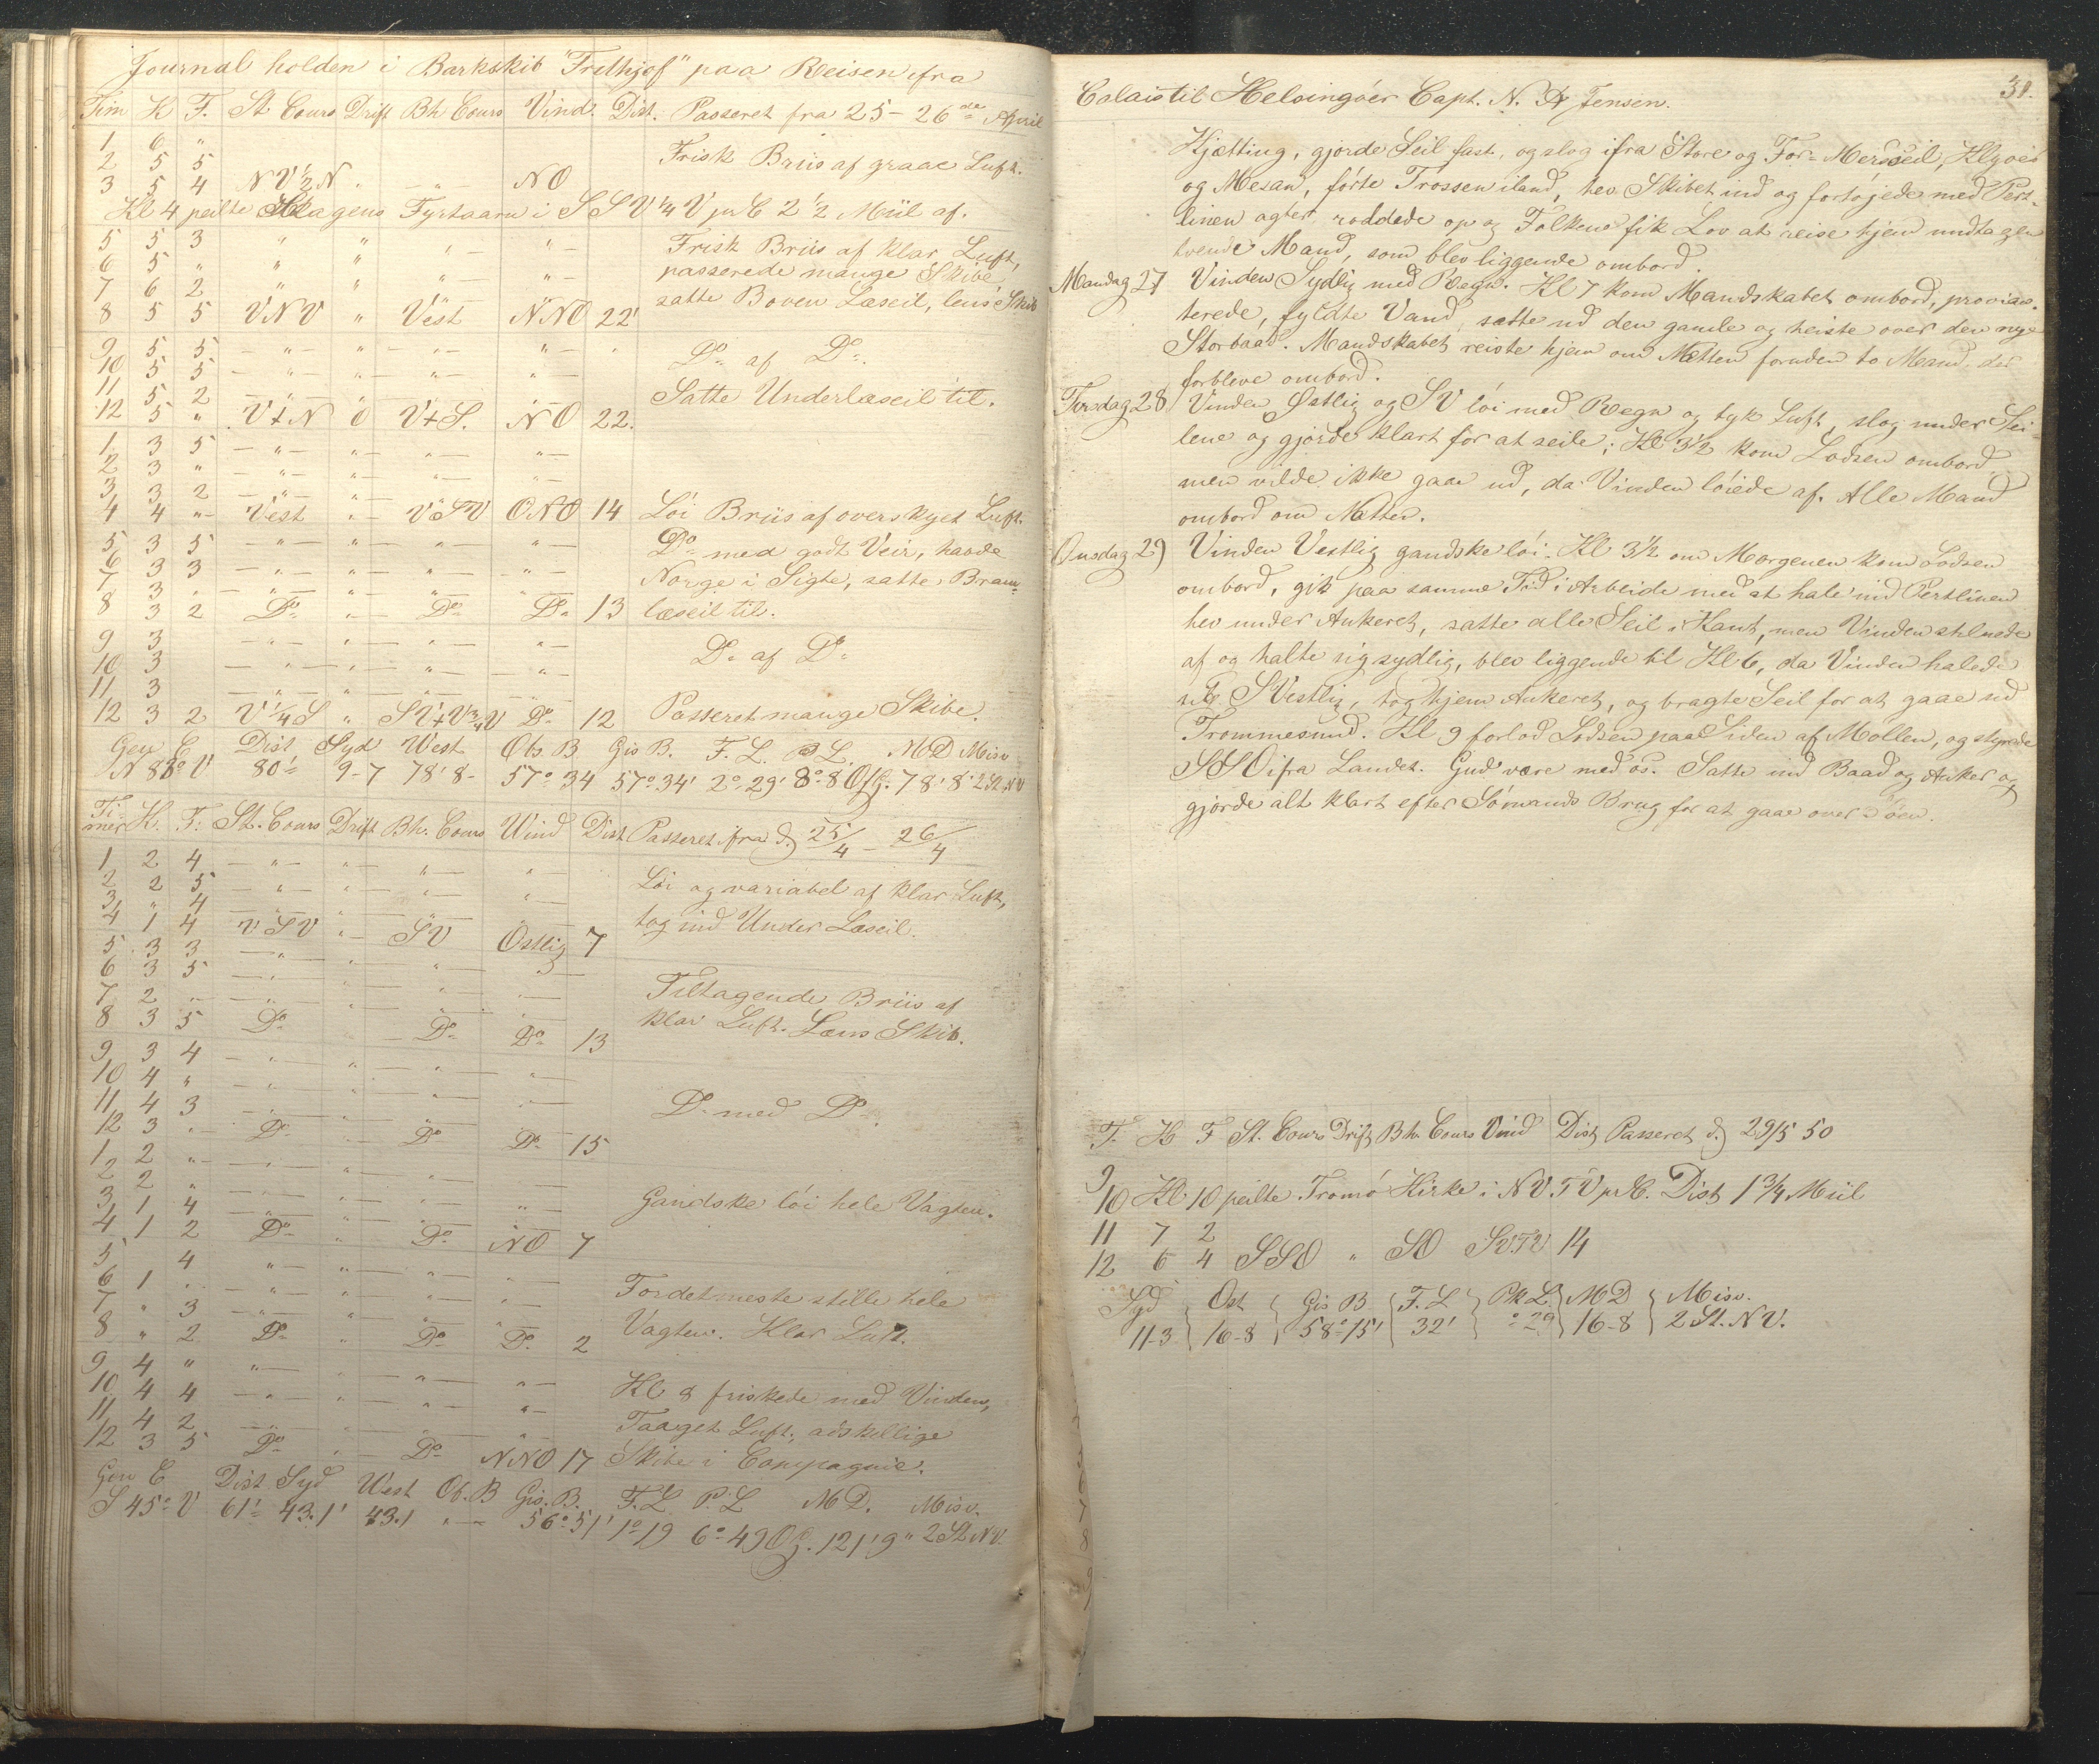 Journal holden i Barkskib "Frithjof" paa Reisen ifra
Tim K F. St Cours Drift Bh Cours Vind. Dist. Passeret fra 25 - 26de April
1 6 "
2 5 5 Frisk Briis af graae Luft.
3 5 4 NV½N " — " — NO
Kl 4 peilte Skagens Fyrtaarn i SSV¼V pr C 2½ Miil af.
5 5 3 " " " — " — Frisk Briis af klar Luft,
6 5 " " " " — " — passerede mange Skibe,
7 6 2 " " " — " — satte Boven Læseil, lens Skib
8 5 5 VNV " Vest NNO 22'
9 5 5 — " — " — " — " — "
10 5 5 — " — " — " — " — Do af Do
11 5 2 — " — " — " — " — Satte Underlæseil til.
12 5 " V+N 0 V+S. NO 22.
1 3 5 — " — " — " — " —
2 3 " — " — " — " — " —
3 3 2 — " — " —
4 4 " Vest " — VSV ONO 14 Löi Briis af overskyet Luft.
5 3 5 — " — " — " — " — Do med godt Veir, havde
6 3 3 — " — " — " — " — Norge i Sigte, satte Bram-
7 3 " — " — " — " — " —
8 3 2 Do " — Do Do 13 læseil til.
9 3 — " — " — " — " —
10 3 — " — " — " — " — Do af Do
11 3 — " — " — " — " —
12 3 2 V¼S " SV+V¾V Do 12 Passeret mange Skibe.
Gen C Dist Syd West Obs. B Gis B. F. L. P L. MD Misv
N 83° V 80' 9-7 78'8- 57°34 57°34' 2°29' 8°8 Ofg. 78'8" 2 St NV
Timer K. F. St. Cours Drift Bh. Cours Wind Dist Passeret ifra d. 25/4 - 26/4
1 2 4 — " — " — " — " —
2 2 5 — " — " — " — " — Löi og variabel af klar Luft,
3 " 4
4 1 4 VSV " — SV Ostlig 7 tog ind Under Læseil.
5 3 3 — " — " — " —
6 3 5 — " — " — " — " —
7 2 " — " — " — " — " — Tiltagende Briis af
8 3 5 Do Do Do 13 klar Luft. Læns Skib.
9 3 4 — " — " — " — " —
10 4 " — " — " — " — " —
11 4 3 — " — " — " — " — Do med Do
12 3 " Do Do Do 15
1 2 " — " — " — " — " —
2 2 " — " — " — " — " —
3 1 4 — " — " — " — " — Gandske löi hele Vagten.
4 1 2 Do " Do NO 7
5 4 " — " — " — " —
6 1 " — " — " — " — " — Fordetmeste stille hele
7 " 3 — " — " — " — " —
8 " 2 Do " Do Do 2 Vagten. Klar Luft.
9 4 " " — " — " — " —
10 4 4 — " — " — " — " — Kl 8 friskede med Vinden,
11 4 2 — " — " — " — " — Taaget Luft, adskillige
12 3 5 Do " — Do NNO 17 Skibe i Compagnie.
Gen C Dist Syd West Ob. B Gis. B. F. L P. L MD. Misv.
S 45° V 61' 43.1' 43.1 " — 56°51' 1°19 6°49 Ofg. 121'9" 2 St NV.
Calais til Helsingöer Capt. N. A Jensen.
31.
Kjætting, gjorde Seil fast, og slog ifra Store og For-Mersseil, Klyver
og Mesan, førte Trossen iland, hev Skibet ind og fortøjede med Pert-
linen agter, røddede op og Folkene fik Lov at reise hjem undtagen
tvende Mand, som blev liggende ombord.
Mandag 27 Vinden Sydlig med Regn. Kl 7 kom Mandskabet ombord, provian-
terede, fyldte Vand, satte ud den gamle og heiste over den nye
Storbaad. Mandskabet reiste hjem om Natten foruden to Mand, der
forbleve ombord.
Tirsdag 28 Vinden Østlig og SV löi med Regn og tyk Luft, slog under Sei-
lene og gjorde klart for at seile; Kl 3½ kom Lodsen ombord
men vilde ikke gaae ud, da Vinden löiede af. Alle Mand
ombord om Natten.
Onsdag 29 Vinden Vestlig gandske löi. Kl 3½ om Morgenen kom Lodsen
ombord, gik paa samme Tid i Arbeide med at hale ind Pertlinen
hev under Ankeret, satte alle Seil i Kant, men Vinden stilnede
af og halte sig sydlig, blev liggende til Kl 6, da Vinden halede
sig SVestlig, tog hjem Ankeret, og bragte Seil for at gaae ud
Trommesund. Kl 9 forlod Lodsen paa Siden af Mollen, og styrede
SSO ifra Landet. Gud være med os. Satte ind Baad og Anker og
gjorde alt klart efter Sömands Brug for at gaae over Söen.
T. K F St. Cours Drift Bh. Cours Vind Dist Passeret d. 29/5 50
9
10 Kl 10 peilte Tromö Kirke i NV.TV pr C. Dist 1¾ Miil
11 7 2
12 6 4 SSO " SO SV.TV 14
Syd Ost Gis B F. L Pk L. MD Misv.
11-3 16-8 58°15' 32' °29 16-8 2 St. NV.